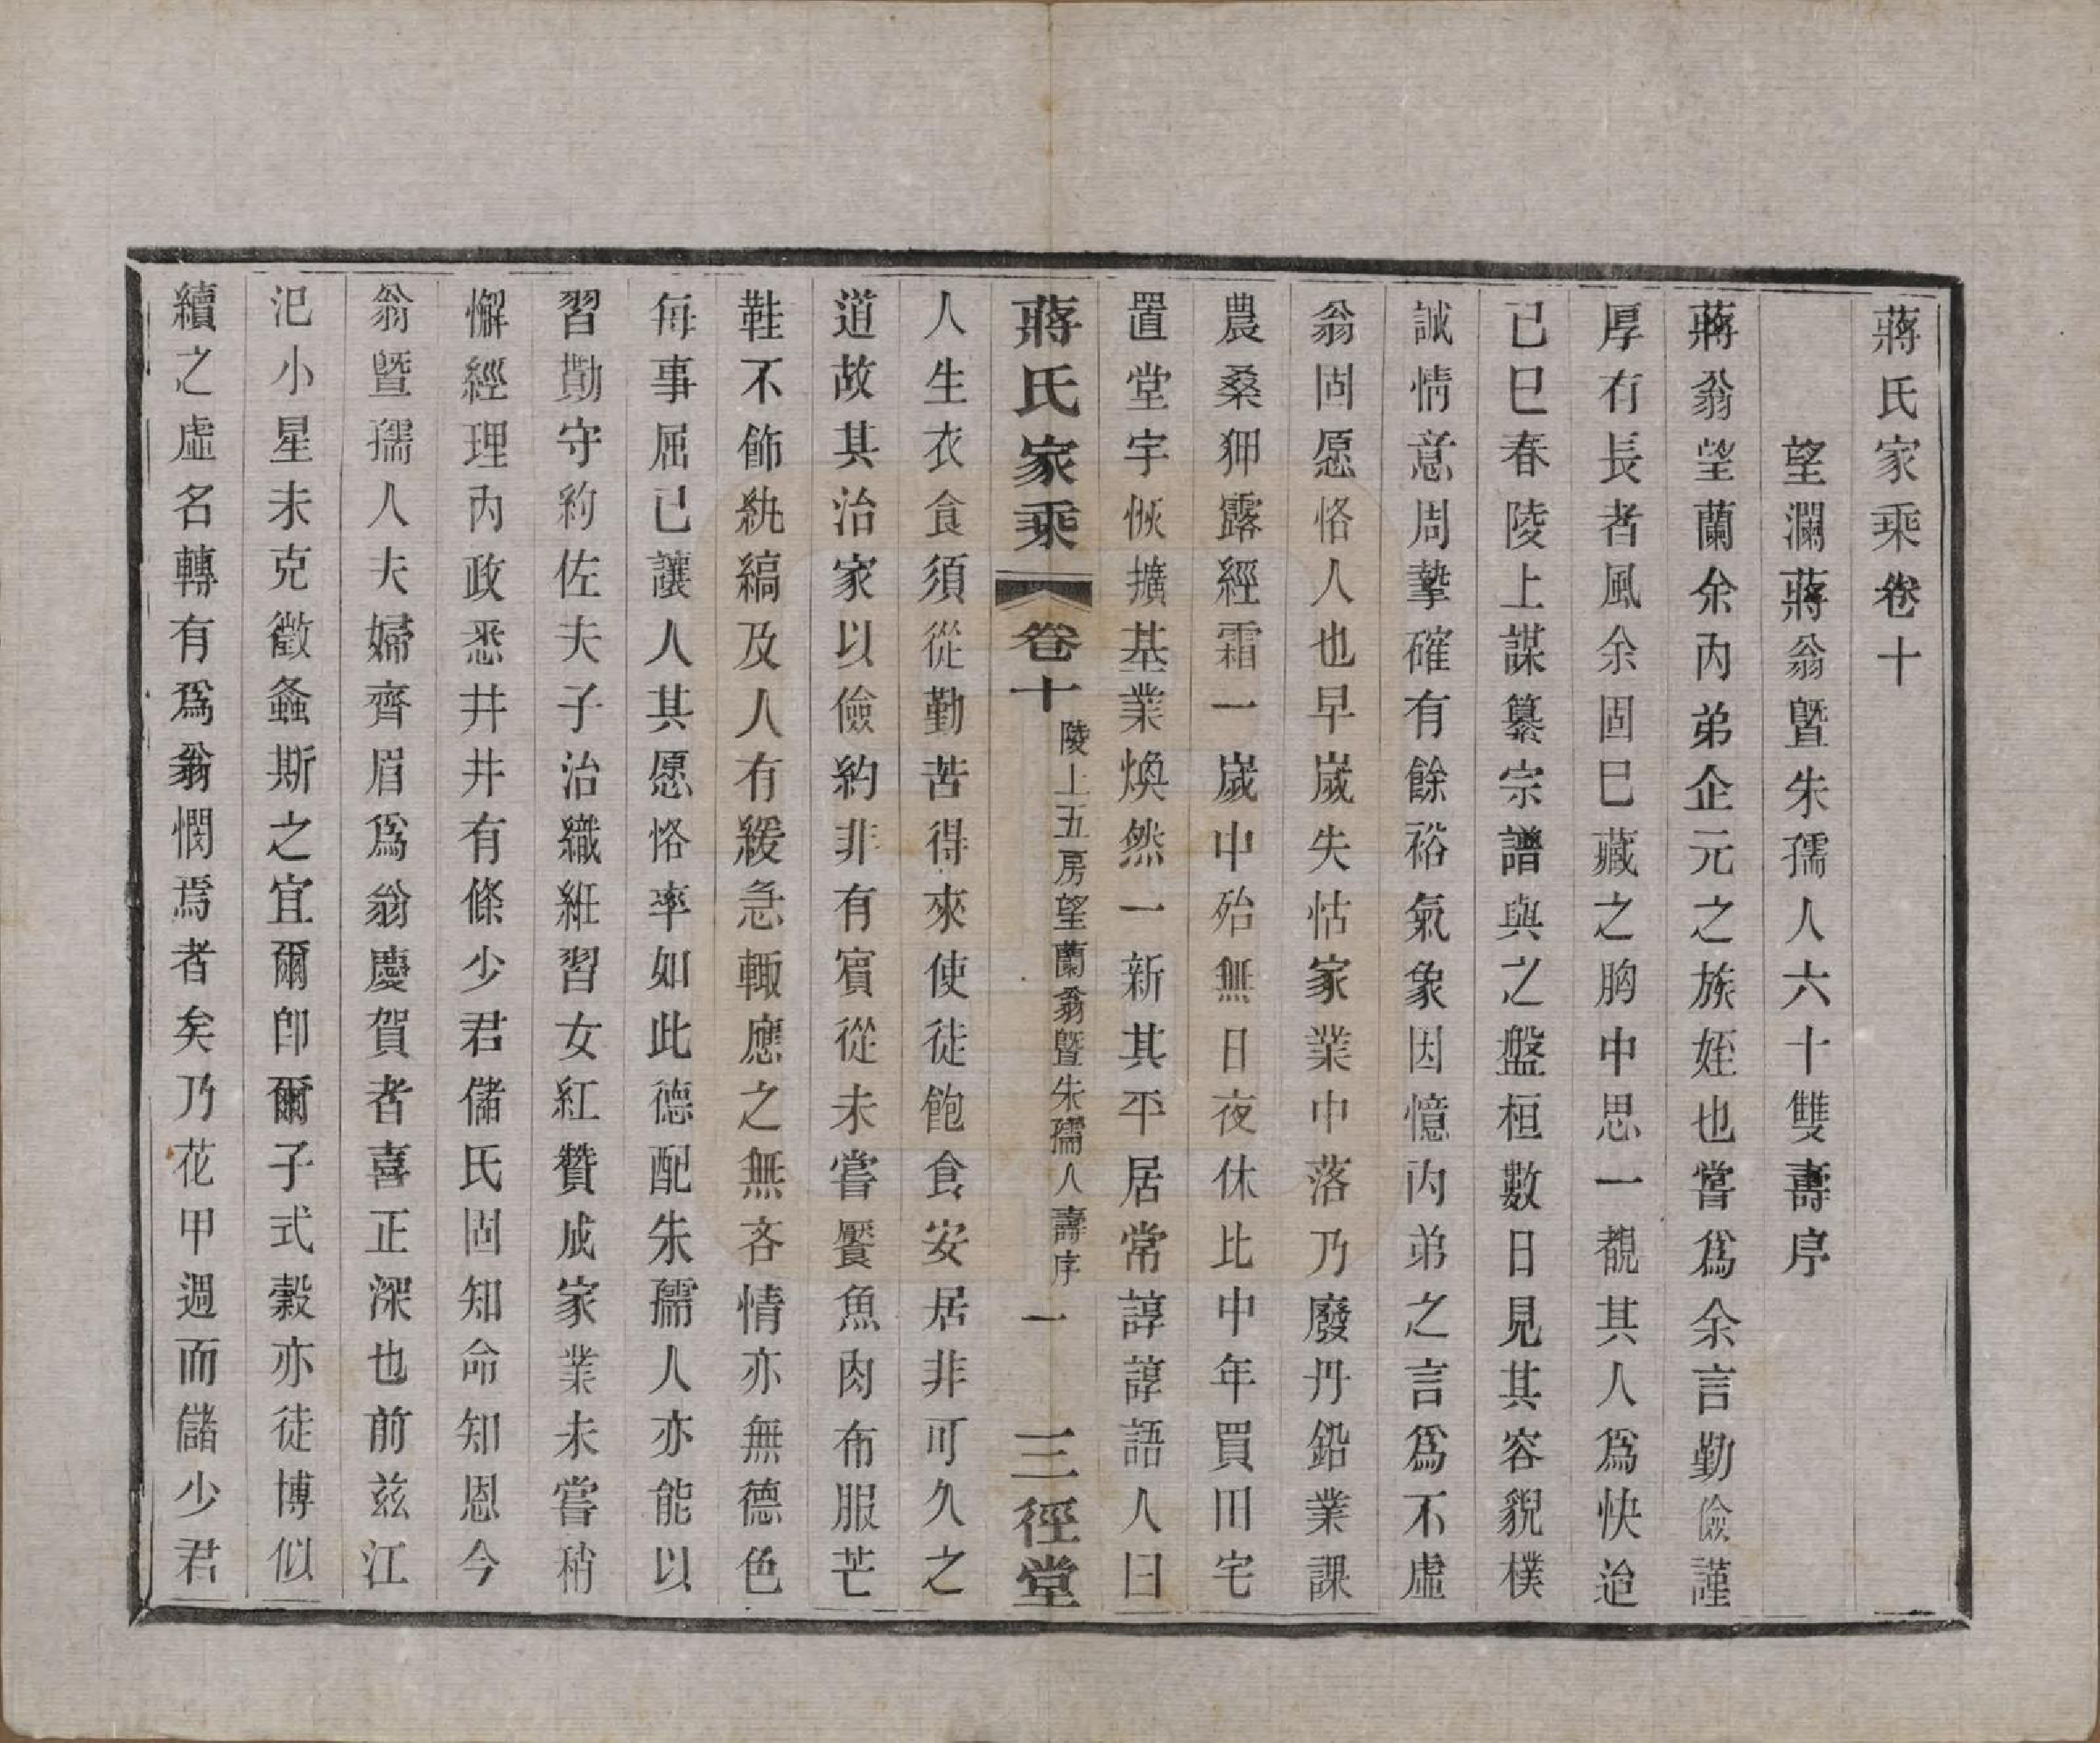 蔣氏家乘卷十
望瀾蔣翁暨朱孺人六十雙壽序
蔣翁望蘭余內弟企元之族姪也嘗爲余言勤儉謹
厚有長者風余固已藏之胸中思一覩其人爲快迨
己巳春陵上謀纂宗譜與之盤桓數日見其容貌樸
誠情意周摯確有餘裕氣象因憶內弟之言爲不虛
翁固愿恪人也早嵗失怙家業中落乃廢丹鉛業課
農桑狎露經霜一嵗中殆無日夜休比中年買田宅
置堂宇恢擴基業煥然一新其平居常諄諄語人曰
蔣氏家乘 卷十 陵上五房望蘭翁暨朱孺人壽序 一 三徑堂
人生衣食須從勤苦得來使徒飽食安居非可久之
道故其治家以儉約非有賓從未嘗饜魚肉布服芒
鞋不飾紈縞及人有緩急輒應之無吝情亦無德色
每事屈己讓人其愿恪率如此德配朱孺人亦能以
習勤守約佐夫子治織紝習女紅贊成家業未嘗稍
懈經理內政悉井井有條少君儲氏固知命知恩今
翁暨孺人夫婦齊眉爲翁慶賀者喜正深也前兹江
汜小星未克徵螽斯之宜爾卽爾子式穀亦徒博似
續之虛名轉有爲翁憫焉者矣乃花甲週而儲少君